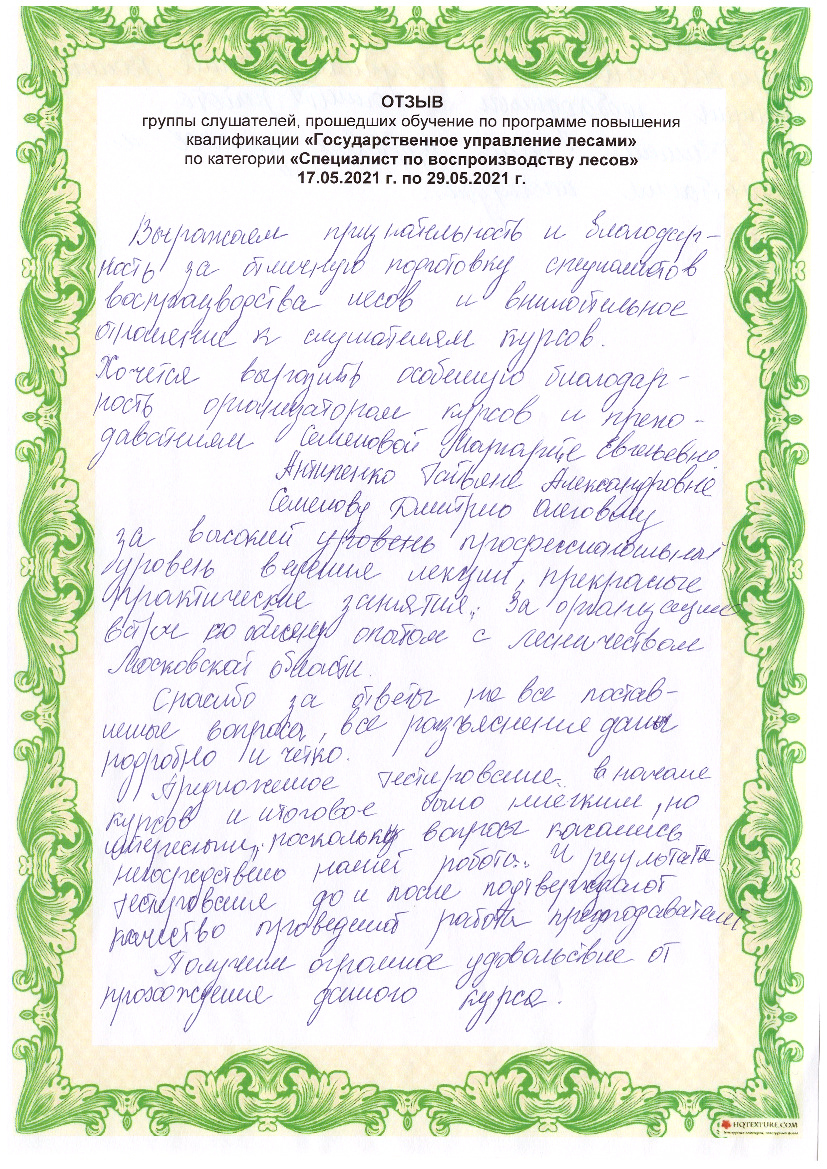 ОТЗЫВ
группы слушателей, прошедших обучение по программе повышения
квалификации «Государственное управление лесами»
по категории «Специалист по воспроизводству лесов»
17.05.2021 г. по 29.05.2021 г.
Выражаем признательность и благодар-
ность за отличную подготовку специалистов
воспроизводства лесов и внимательное
отношение к слушателям курсов.
Хочется выразить особенную благодар-
ность организаторам курсов и препо-
давателям Семеновой Маргарите Евгеньевне
Антипенко Татьяне Александровне
Семенову Дмитрию Олеговичу
за высокий уровень профессиональный
уровень ведения лекций, прекрасные
практические занятия, За организацию
встречи по обмену опытом с лесничеством
Московской области.
Спасибо за ответы на все постав-
ленные вопросы, все разъяснения даны
подробно и четко.
Предложенное тестирование в начале
курсов и итоговое было нелегким, но
интересным, поскольку вопросы касались
непосредственно нашей работы. И результаты
тестирования до и после подтверждают
качество проведенной работы преподавателей
Получили огромное удовольствие от
прохождения данного курса.
HQTEXTURE.COM